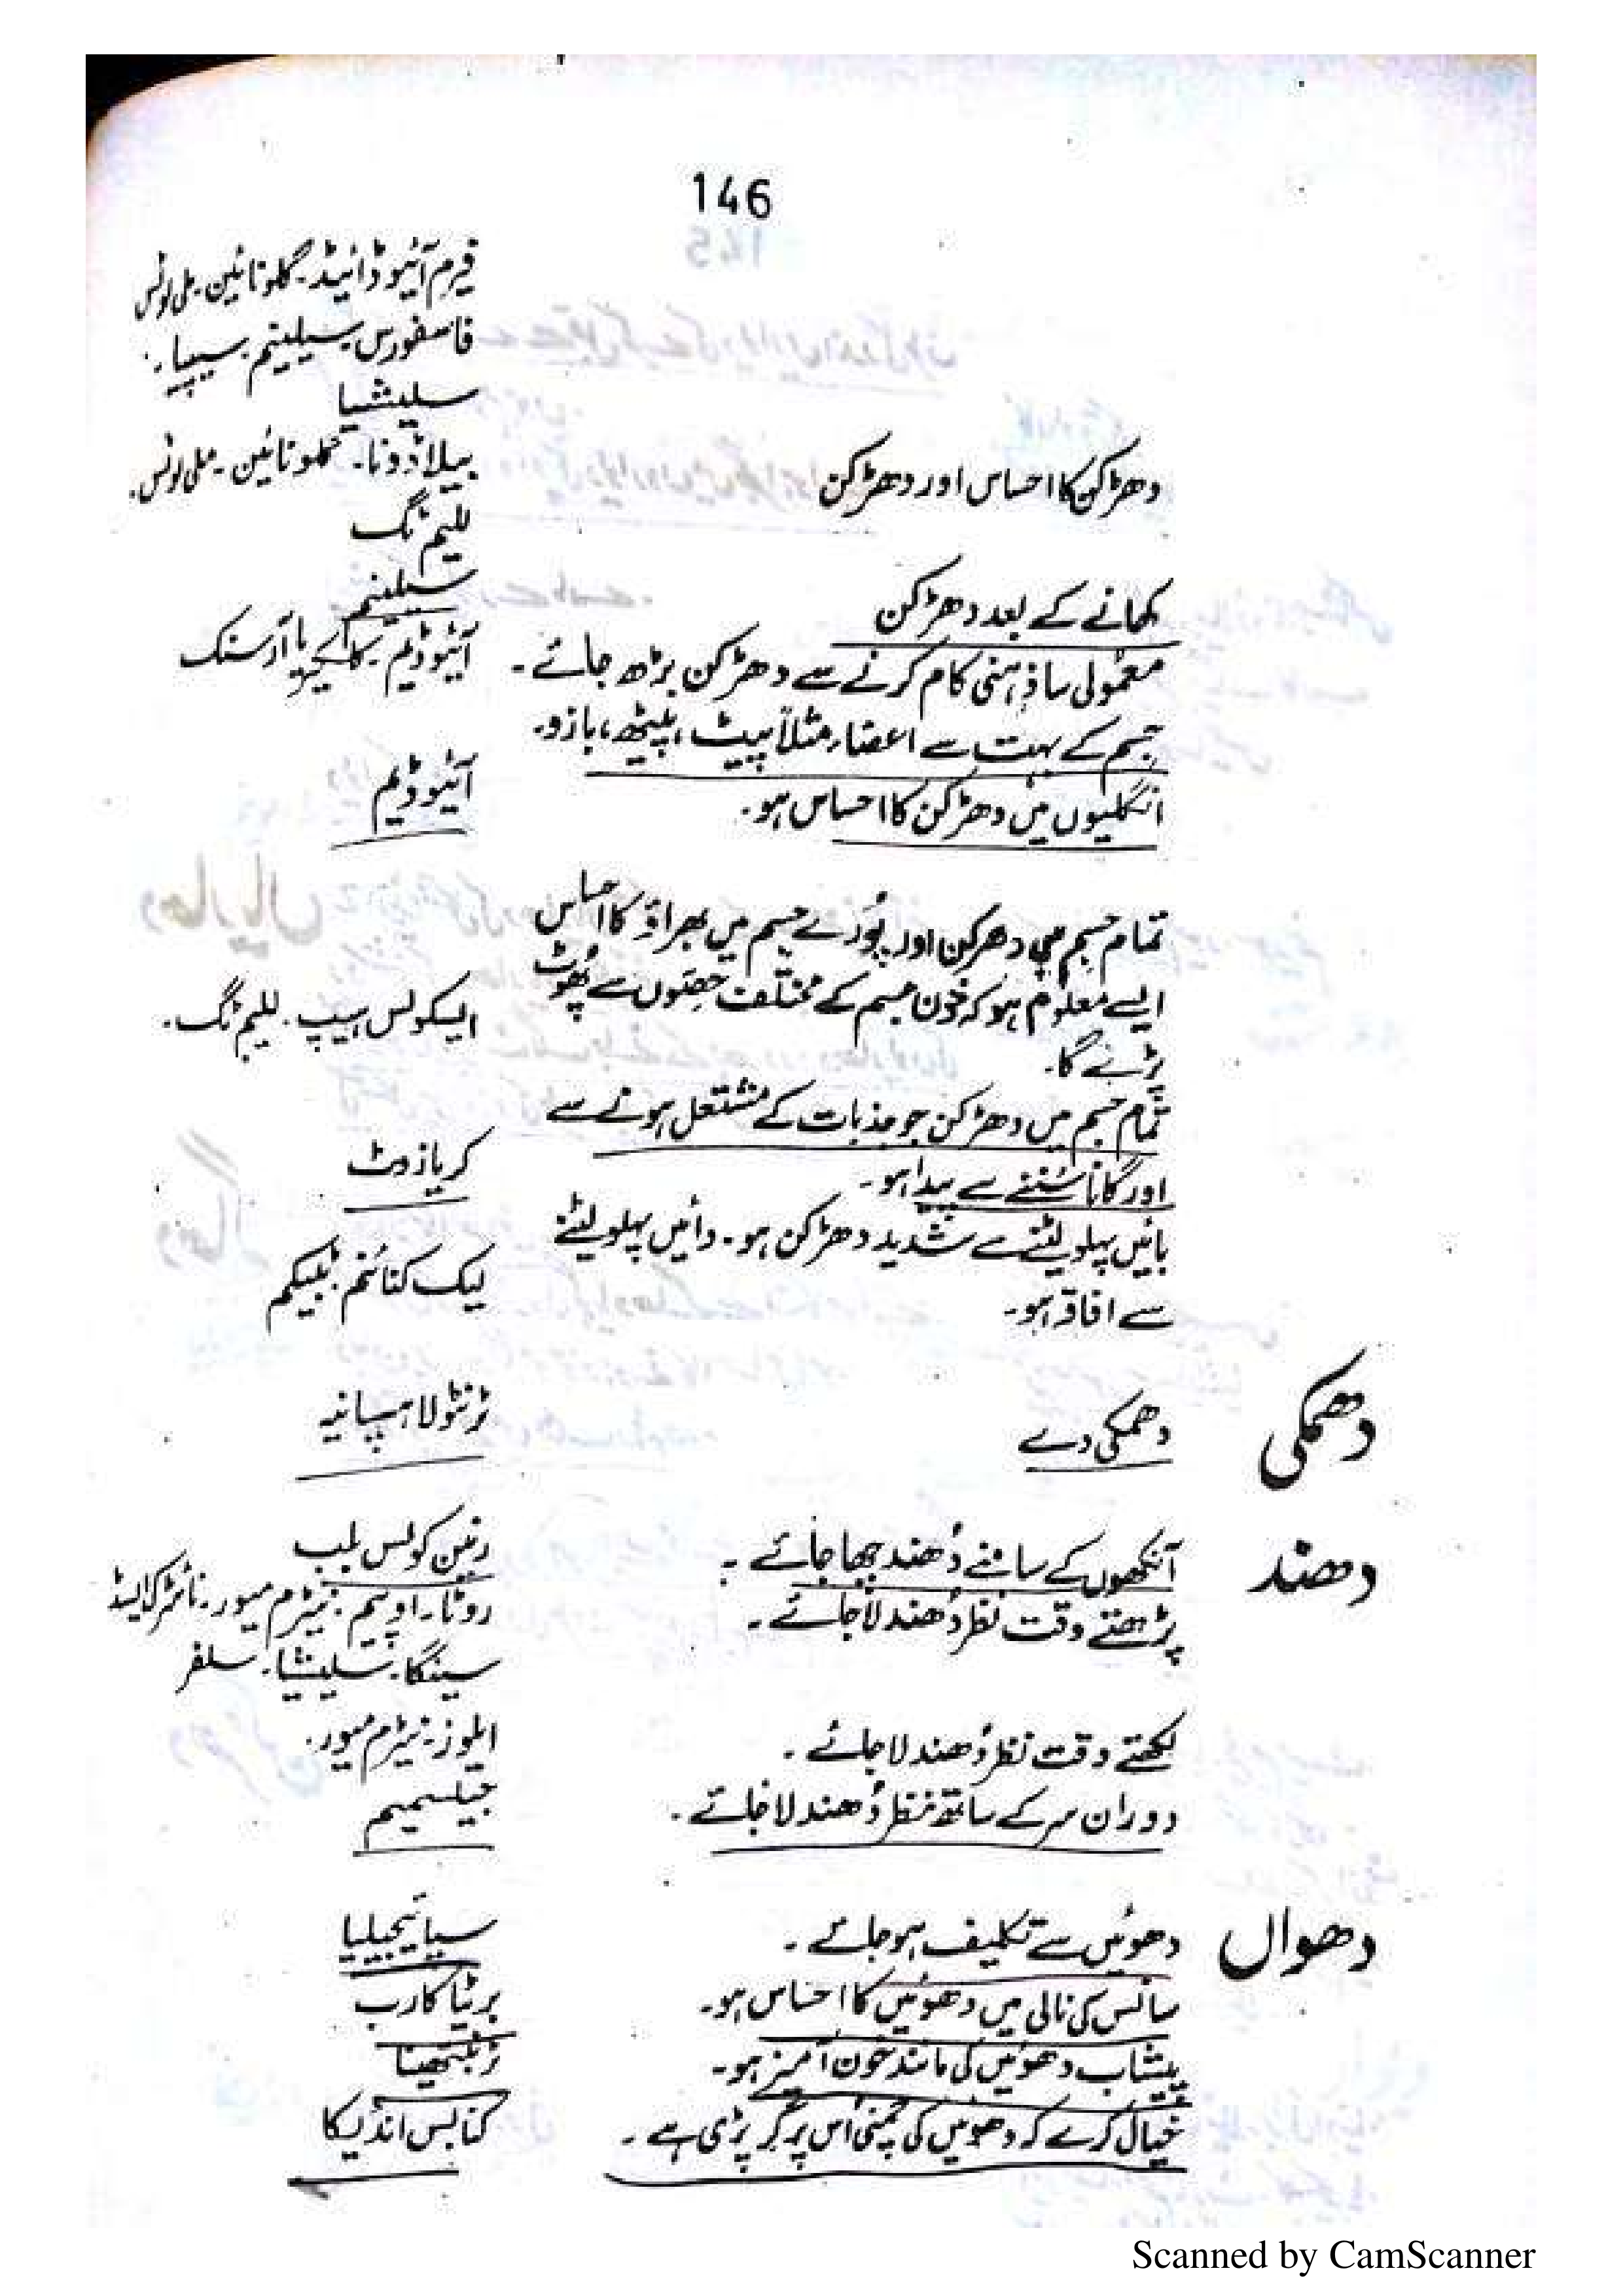 146
فیرم آئیوڈائیڈ۔ گلونائین۔ ملی لوٹس
فاسفورس۔ سیلینیم۔ سیپیا۔
سلیشیا
دھڑکن کا احساس اور دھڑکن
بیلاڈونا۔ گلونائین۔ ملی لوٹس۔
للیم ٹگ
کھانے کے بعد دھڑکن
سیلینیم
معمولی سا ذہنی کام کرنے سے دھڑکن بڑھ جائے۔
آئیوڈیم۔ کلکیریا آرسنک
جسم کے بہت سے اعضاء مثلاً پیٹ، پیٹھ، بازو۔
انگلیوں میں دھڑکن کا احساس ہو۔
آئیوڈیم
تمام جسم میں دھڑکن اور پُورے جسم میں بھراؤ کا احساس
ایسے معلوم ہو کہ خون جسم کے مختلف حصّوں سے پُھوٹ
پڑنے گا۔
ایسکولس ہیپ۔ للیم ٹگ۔
تمام جسم میں دھڑکن جو جذبات کے مشتعل ہونے سے
اور گانا سُننے سے پیدا ہو۔
کریازوٹ
بائیں پہلو لیٹنے سے شدید دھڑکن ہو۔ دائیں پہلو لیٹنے
سے افاقہ ہو۔
لیک کنائنم۔ ٹبیکم
دھمکی
دھمکی دے
ٹرنٹولا ہسپانیہ
دھند
آنکھوں کے سامنے دُھند چھا جائے۔
رینن کولس بلب
پڑھتے وقت نظر دُھندلا جائے۔
روٹا۔ اوپیم۔ نیٹرم میور۔ نائٹرک ایسڈ
سینگا۔ سلیشا۔ سلفر
لکھتے وقت نظر دُھندلا جائے۔
ایلوز۔ نیٹرم میور۔
دوران سر کے ساتھ نظر دُھندلا جائے۔
جیلسیمیم
دھواں
دھوئیں سے تکلیف ہو جائے۔
سپائیجیلیا
سانس کی نالی میں دھوئیں کا احساس ہو۔
برئیٹا کارب
پیشاب دھوئیں کی مانند خون آمیز ہو۔
ٹربنتھینا
خیال کرے کہ دھوئیں کی چمنی اُس پر گر پڑی ہے۔
کنابس انڈیکا
Scanned by CamScanner